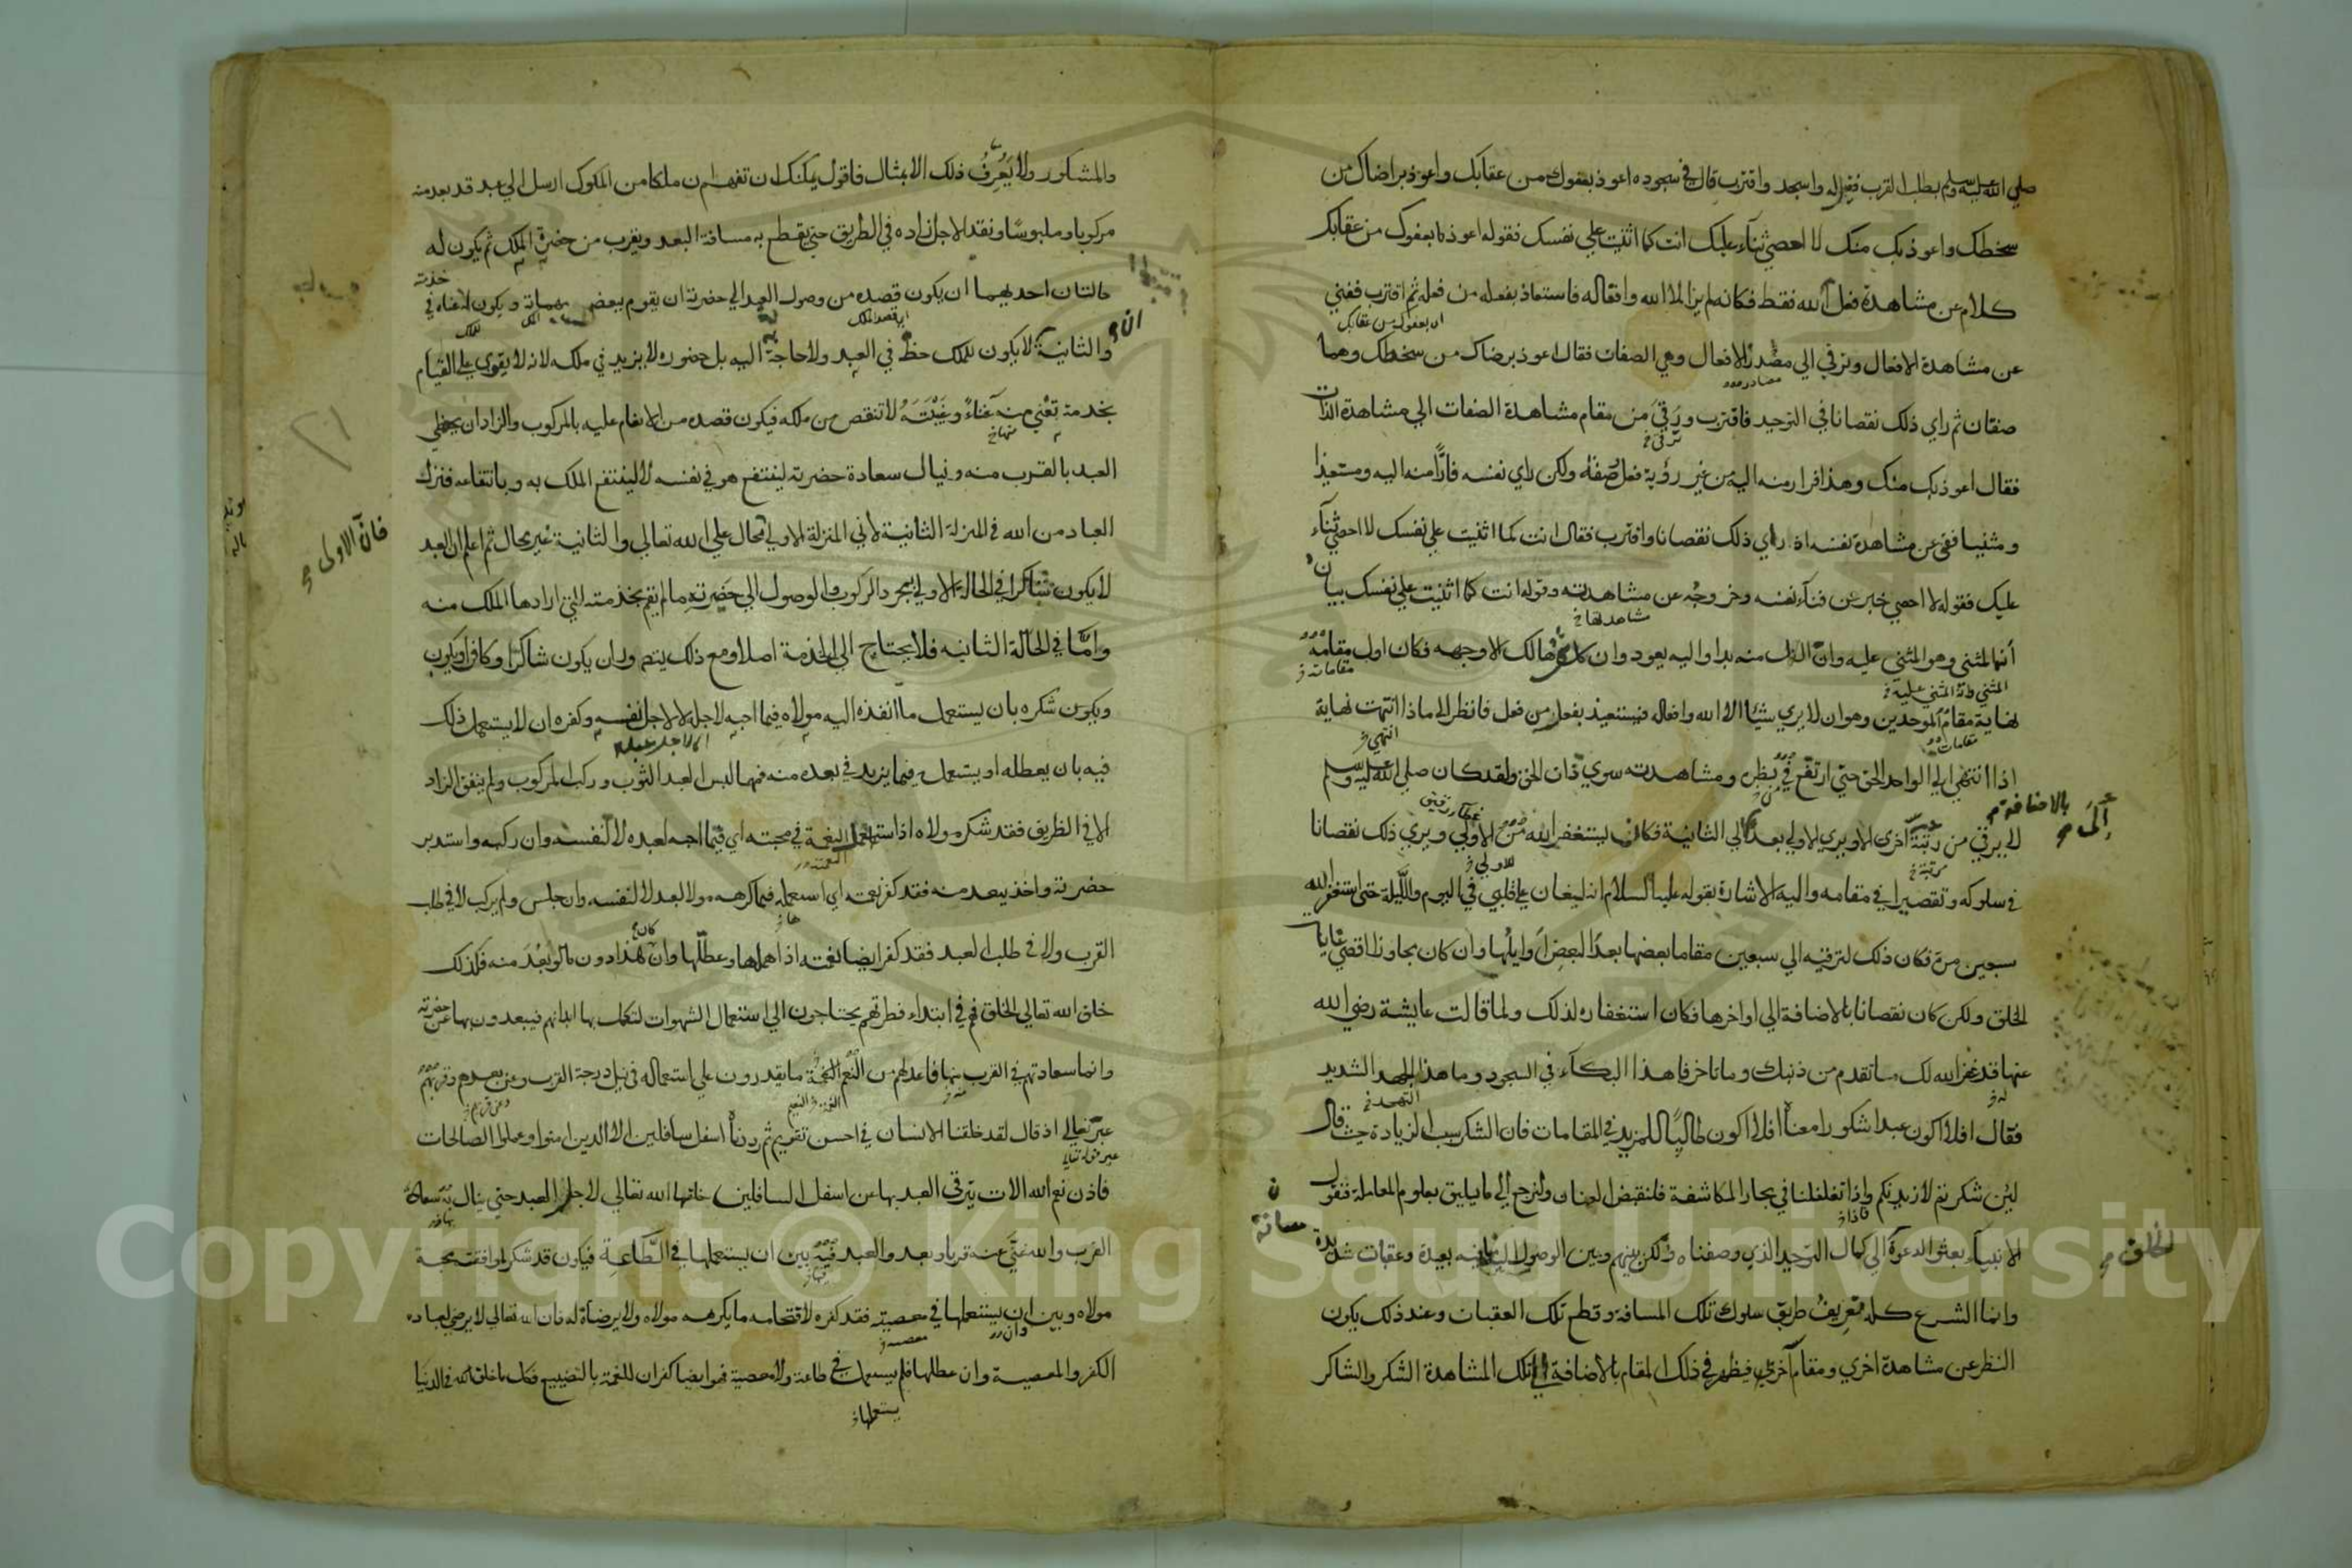 صلي الله عليه وسلم بطلب القرب فقيل له واسجد واقترب قال في سجوده اعوذ بعفوك من عقابك واعوذ برضاك من
سخطك واعوذ بك منك لا احصي ثناء عليك انت كما اثنيت علي نفسك فقوله اعوذ بعفوك من عقابك
كلام عن مشاهدة فعل الله فقط فكانه لم ير الا الله وافعاله فاستعاذ بفعله من فعله ثم اقترب ففني
عن مشاهدة الافعال وترقي الي مصدر الافعال وهي الصفات فقال اعوذ برضاك من سخطك وهما
صفتان ثم راي ذلك نقصانا في التوحيد فاقترب ورقي من مقام مشاهدة الصفات الي مشاهدة الذات
فقال اعوذ بك منك وهذا فرار منه اليه من غير رؤية فعل وصفة ولكن راي نفسه فارا منه اليه ومستعيذا
ومثنيا ففني عن مشاهدة نفسه اذ راي ذلك نقصانا واقترب فقال انت كما اثنيت علي نفسك لا احصي ثناء
عليك فقوله لا احصي خبر عن فناء نفسه وخروجه عن مشاهدته وقوله انت كما اثنيت علي نفسك بيان
أنه المثني وهو المثني عليه وان الكل منه بدا واليه يعود وان كل شيء هالك الا وجهه فكان اول مقامه
نهاية مقام الموحدين وهو ان لا يري شيئا الا الله وافعاله فيستعيذ بفعل من فعل فانظر الي ماذا انتهت نهاية
اذا انتهي الي الواحد الحق حتي ارتفع في نظره ومشاهدته سوي ذات الحق ولقد كان صلي الله عليه وسلم
لا يرقي من رتبة اخري الا ويري الاولي بعدا الي الثانية فكان يستغفر الله من الاولي ويري ذلك نقصانا
في سلوكه وتقصيرا في مقامه واليه الاشارة بقوله عليه السلام انه ليغان علي قلبي في اليوم والليلة حتي استغفر الله
سبعين مرة فكان ذلك لترقيه الي سبعين مقاما بعضها بعد البعض اوايلها وان كان مجاوزا اقصي غايات
الخلق ولكن كان نقصانا بالاضافة الي اواخرها فكان استغفاره لذلك ولما قالت عايشة رضي الله
عنها قد غفر الله لك ما تقدم من ذنبك وما تاخر فما هذا البكاء في السجود وما هذا الجهد الشديد
فقال افلا اكون عبدا شكورا معناه افلا اكون طالبا للمزيد في المقامات فان الشكر سبب الزيادة حيث قال
لئن شكرتم لازيدنكم واذا تغلغلنا في بحار المكاشفة فلنقبض العنان ولنرجع الي ما يليق بعلوم المعاملة فنقول
الانبياء بعثوا لدعوة الي كمال التوحيد الذي وصفناه ولكن بينهم وبين الوصول اليه مسافة بعيدة وعقبات شديدة
وانما الشرع كله تعريف طريق سلوك تلك المسافة وقطع تلك العقبات وعند ذلك يكون
النظر عن مشاهدة اخري ومقام آخر فيظهر في ذلك المقام بالاضافة الي تلك المشاهدة الشكر والشاكر
والمشكور ولا يعرف ذلك الا بمثال فاقول يمكنك ان تفهم ان ملكا من الملوك ارسل الي عبد قد بعد منه
مركوبا وملبوسا ونقدا لاجل زاده في الطريق حتي يقطع به مسافة البعد ويقرب من حضرة الملك ثم يكون له
حالتان احديهما ان يكون قصده من وصول العبد الي حضرته ان يقوم ببعض مهماته ويكون له غناء في
خدمته
والثانية لا يكون للملك حظ في العبد ولا حاجة اليه بل حضوره لا يزيد في ملكه لانه لا يقوي علي القيام
بخدمة تغني منه غناء وغيبته لا تنقص من ملكه فيكون قصده من الانعام عليه بالمركوب والزاد ان يحظي
العبد بالقرب منه وينال سعادة حضرته لينتفع هو في نفسه لا لينتفع الملك به وبانتفاعه فنزل
العباد من الله في المنزلة الثانية لا في المنزلة الاولي محال علي الله تعالي والثانية غير محال ثم اعلم ان العبد
فان الاولى
لا يكون شاكرا في الحالة الاولي بمجرد الركوب والوصول الي حضرته ما لم يقم بخدمته التي ارادها الملك منه
واما في الحالة الثانيه فلا يحتاج الي الخدمة اصلا ومع ذلك يتصور ان يكون شاكرا وكافرا ويكون
ويكون شكره بان يستعمل ما انفذه اليه مولاه فيما احبه لاجله لا لاجل نفسه وكفره ان لا يستعمل ذلك
فيه بان يعطله او يستعمله فيما يزيد في بعده منه فمهما لبس العبد الثوب وركب المركوب ولم ينفق الزاد
الا في الطريق فقد شكر مولاه اذ استعمل النعمة في محبته اي فيما احبه لعبده لا لنفسه وان ركبه واستدبر
حضرته واخذ يبعد منه فقد كفر نعمته اي استعمله فيما كرهه مولاه لعبده لا لنفسه وان جلس ولم يركب لا في طلب
القرب ولا في طلب البعد فقد كفر ايضا نعمته اذ اهملها وعطلها وان كان هذا دون ما لو بعد منه فكذلك
خلق الله تعالي الخلق فهم في ابتداء فطرتهم يحتاجون الي استعمال الشهوات لتكمل بها ابدانهم فيبعدون بها عن حضرته
وانما سعادتهم في القرب منها فاعد لهم من النعم ما يقدرون علي استعماله في نيل درجة القرب وعن بعدهم وقربهم
عبر تعالي اذ قال لقد خلقنا الانسان في احسن تقويم ثم رددناه اسفل سافلين الا الذين امنوا وعملوا الصالحات
فاذن نعم الله الات يترقي العبد بها عن اسفل السافلين خلقها الله تعالي لاجل العبد حتي ينال بها سعادة
القرب والله غني عنه قرب او بعد والعبد فيه بين ان يستعملها في الطاعة فيكون قد شكر لموافقته محبة
مولاه وبين ان يستعملها في معصيته فقد كفره لاقتحامه ما يكرهه مولاه ولا يرضاه له فان الله تعالي لا يرضي لعباده
الكفر والمعصية وان عطلها فلم يستعملها في طاعة ولا معصية فهو ايضا كفران للنعمة بالتضييع فكل ما خلق في الدنيا
يستعملها
Copyright © King Saud University